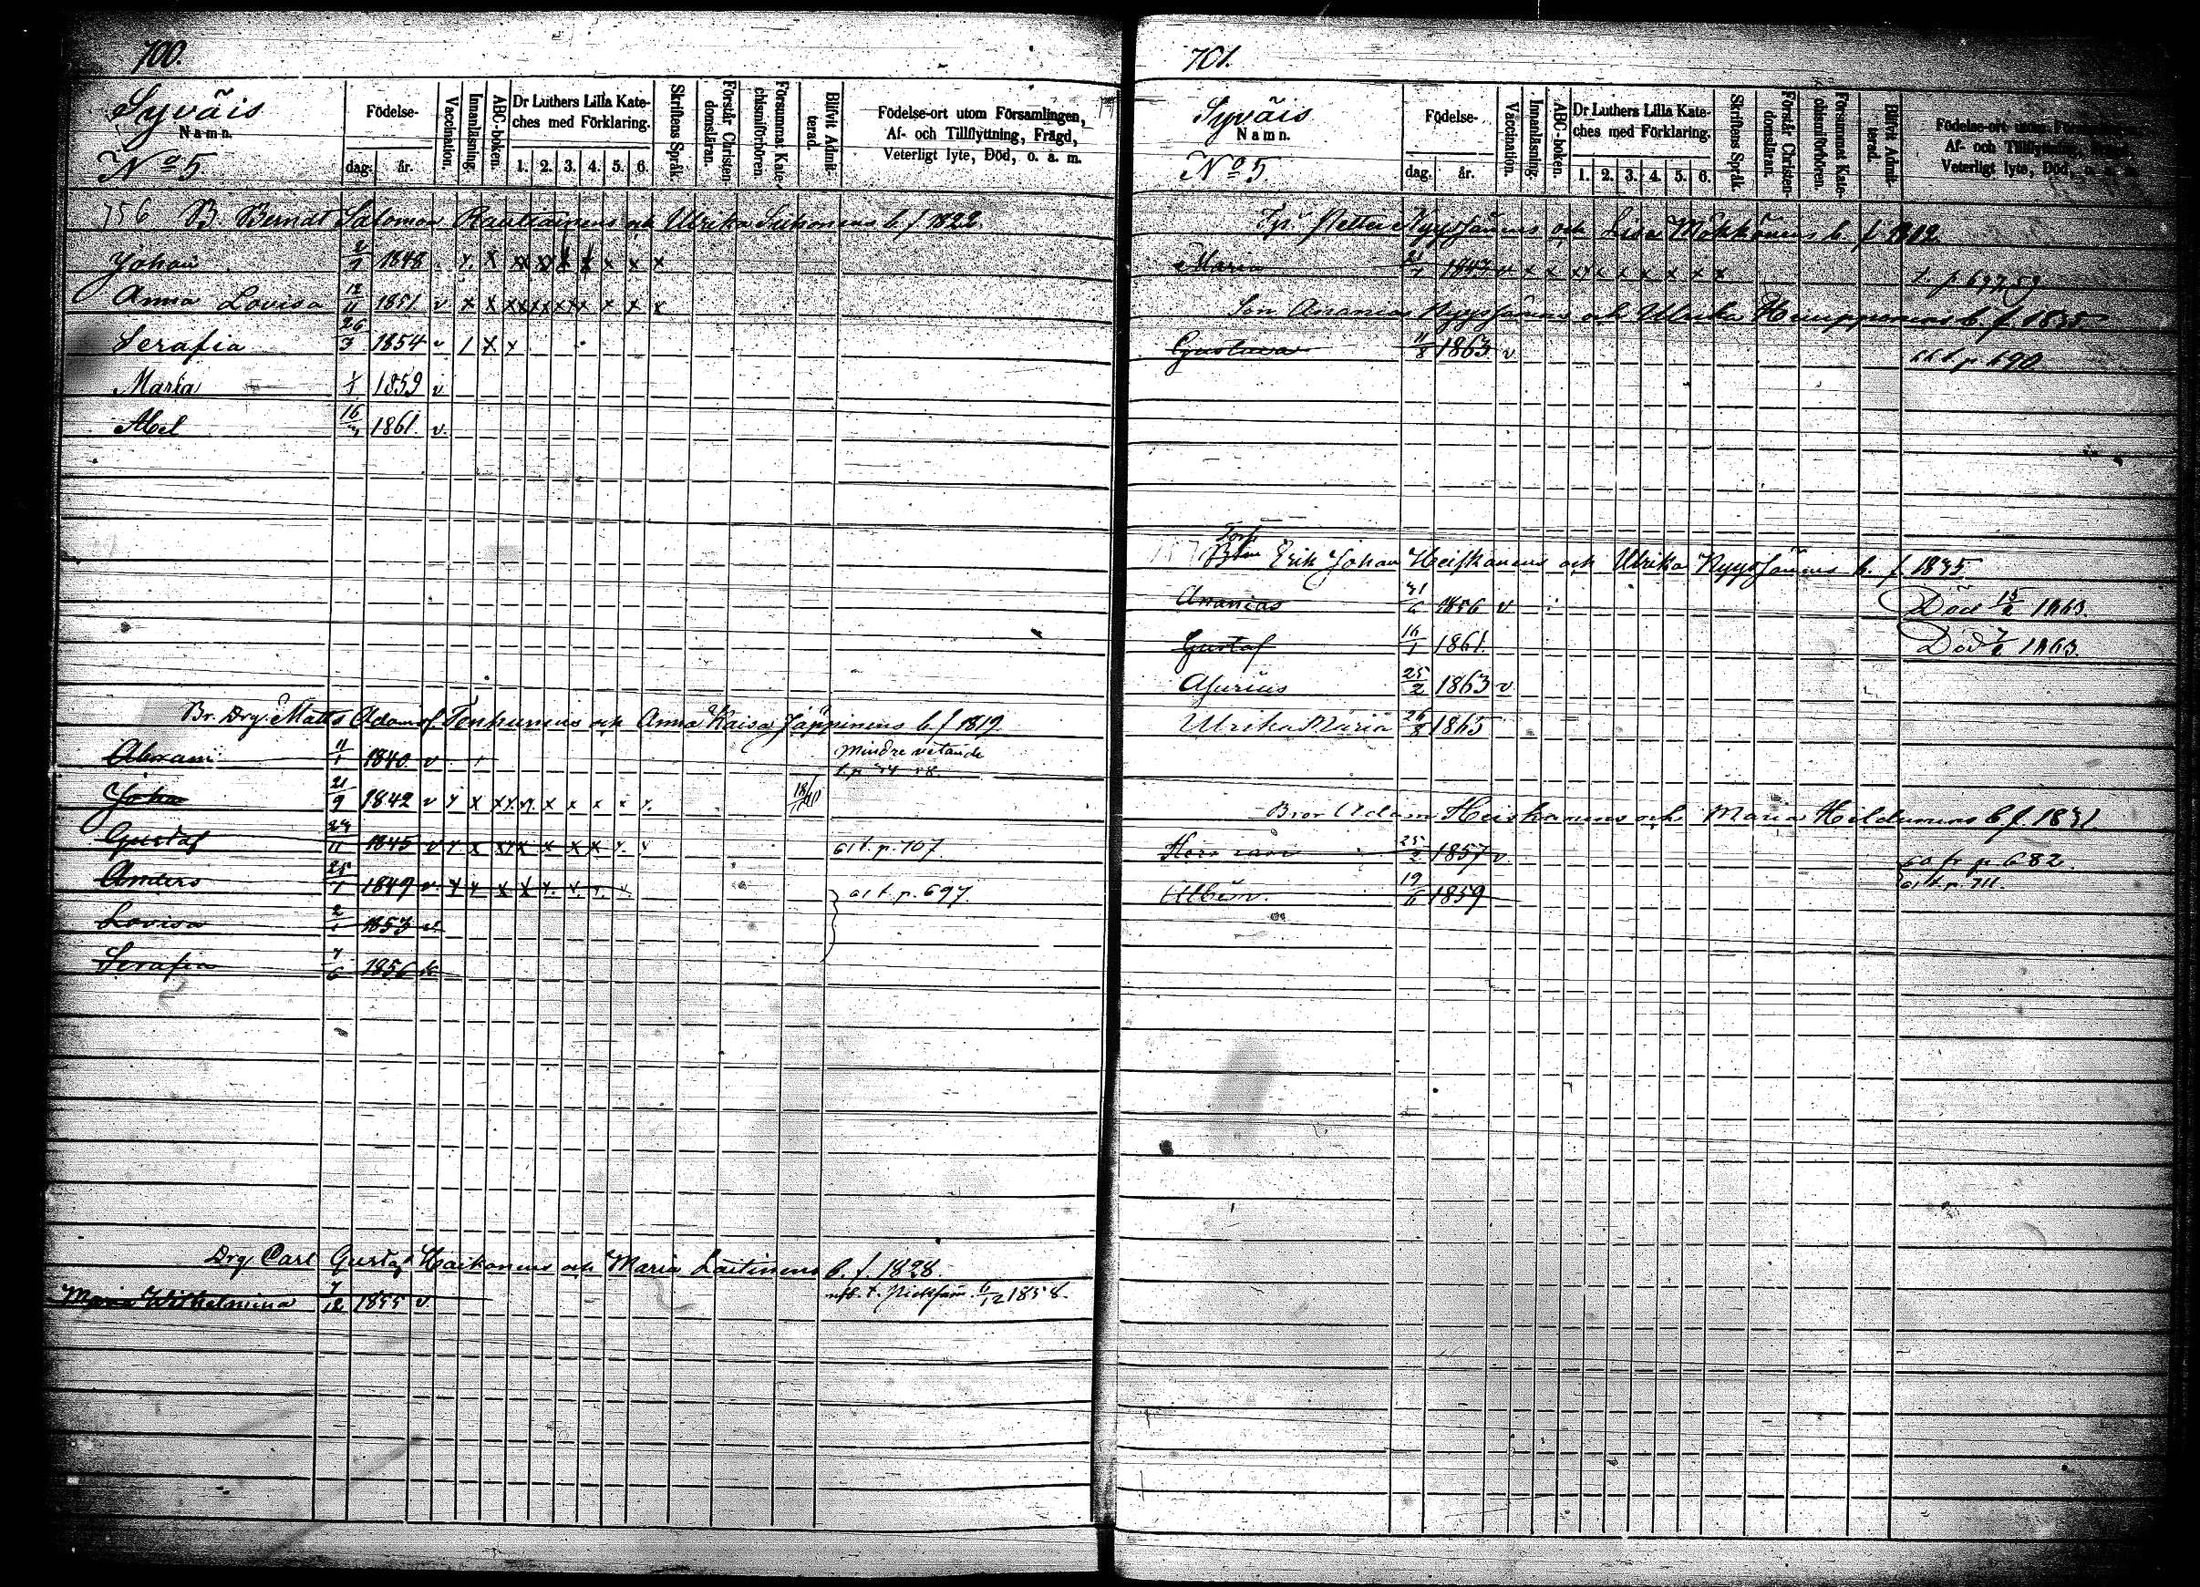 700.
Syväis
Namn.
No 5
Födelse-
dag. år.
Vaccination.
Innanläsning.
ABC-boken.
Dr Luthers Lilla Kate-
ches med Förklaring.
1. 2. 3. 4. 5. 6.
Skriftens Språk.
Förstår Christen-
domsläran.
Försummat Kate-
chismiförhören.
Blifvit Admit-
terad.
Födelse-ort utom Församlingen,
Af- och Tillflyttning, Frägd,
Veterligt lyte, Död, o. a. m.
756 B. Berndt Salomon Rautiainens och Ulrika b. f 1822
Johan 2/7 1848 x x x x x x x
Anna Lovisa 12/11 1851 v x x x x x x x x x
Serafia 26/3 1854 v / x x
Maria 1/1 1859 v
Abel 16/3 1861. v.
Br. Drg. Matts Adamsf. Tenhunens och Anna Kaisa Jäppinens b. f 1819.
Abram 11/1 1840 v Mindre vetande
Joha 21/9 1842 v x x x x x x x
Gustaf 1845 v x x x x x x x 61 t. p. 707
Anders 25/1 1849 v x x x x 61 t. p. 697.
Lovisa 2/1 1853 v
Serafia 7/6 1856
Drg. Carl Gustaf Haikonens och Maria Laitinens b. f. 1828.
Maria Wilhelmina 7/12 1855 v 6/12 1858.
701.
Syväis
Namn.
No 5
Födelse-
dag. år.
Vaccination.
Innanläsning.
ABC-boken.
Dr Luthers Lilla Kate-
ches med Förklaring.
1. 2. 3. 4. 5. 6.
Skriftens Språk.
Förstår Christen-
domsläran.
Försummat Kate-
chismiförhören.
Blifvit Admit-
terad.
Födelse-ort utom Församlingen,
Af- och Tillflyttning, Frägd,
Veterligt lyte, Död, o. a. m.
Petter Nyyssönens och Lisa Mökkönens b. f 1812.
Maria 1847 v x x x x x x x x x t. p 697,59
Son Ananias Nyyssönens och Ulrika b. f. 1835
Gustava 11/8 1863 v t. p. 690
Torp
Erik Johan Heiskanens och Ulrika Nyyssönens b. f 1835
Ananias 31/6 1856 v Död 15/6 1863.
Gustaf 16/1 1861. Död 7/6 1863.
Asurius 25/2 1863 v
Ulrika Maria 26/8 1865
Bror Adam Heiskanens och Maria b f. 1831.
25/2 1857 v 60 fr p 682.
Albin 19/6 1859 61 t. p. 711.